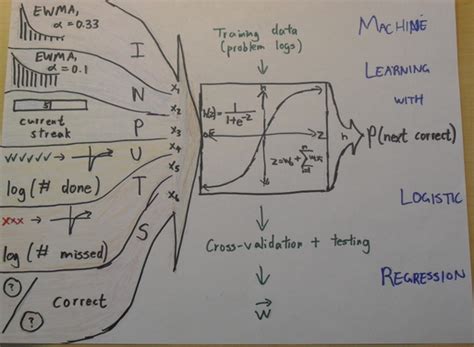 EWMA,
α = 0.33
EWMA,
α = 0.1
51
current
streak
✓✓✓✓✓ →
log(# done)
xxx →
log(# missed)
? / ?
correct
I
N
P
U
T
S
x₁
x₂
x₃
x₄
x₅
x₆
Training data
(problem logs)
h
h(z) = 1/(1+e^-z)
z
z = w₀ + Σ wᵢxᵢ
h
P(next correct)
Cross-validation + testing
w⃗
MACHINE
LEARNING
WITH
LOGISTIC
REGRESSION